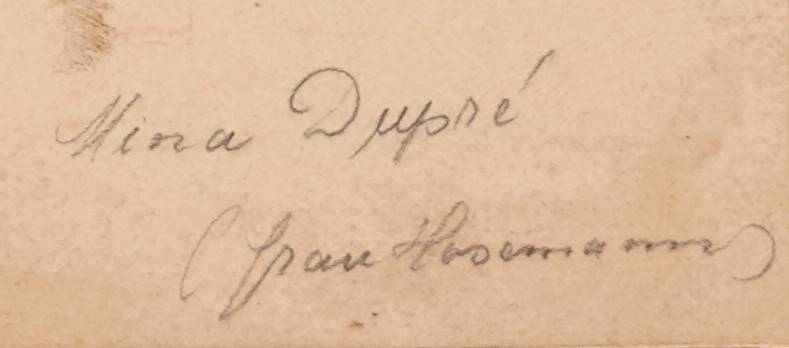 Mina Dupré
(Frau Hosemann)